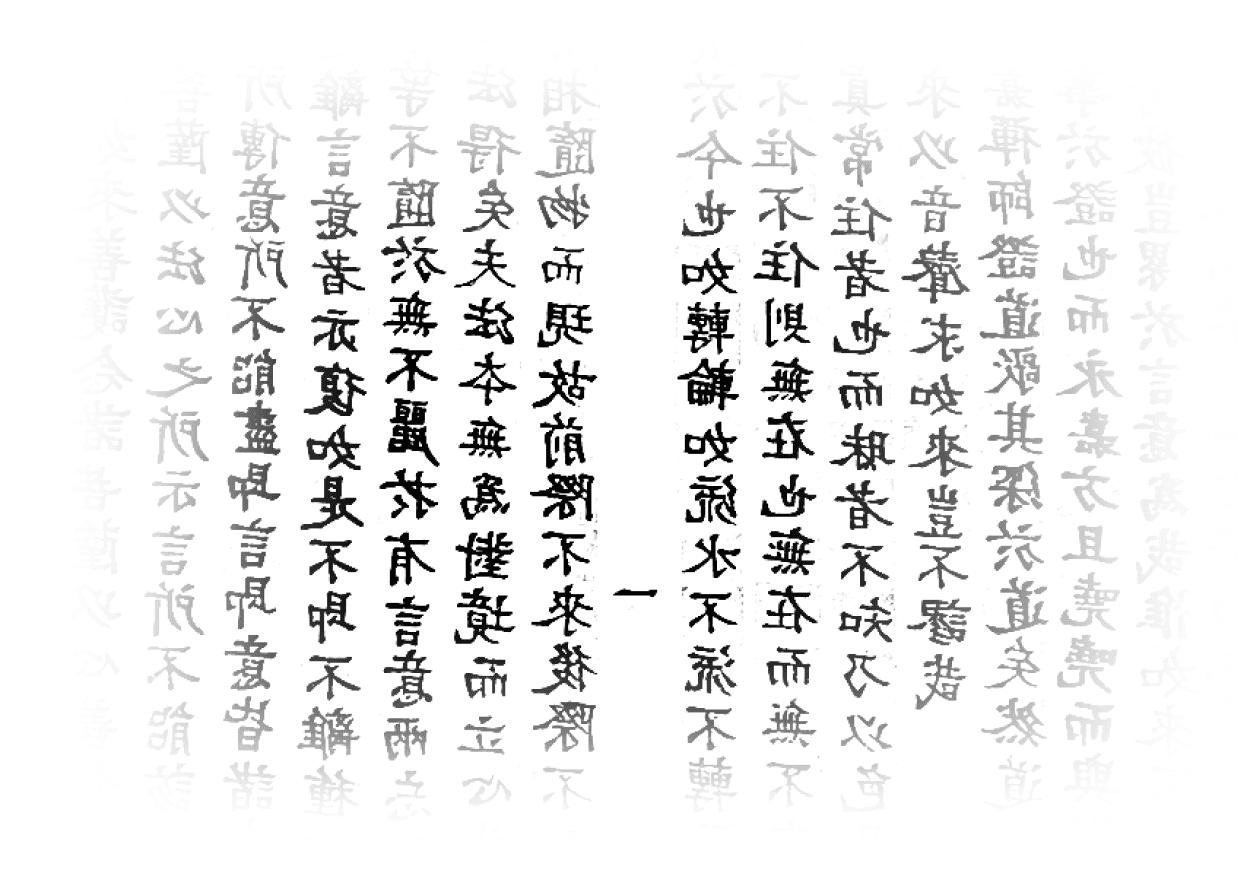 如來善護念諸菩薩以心善
菩薩以法心之所示言所不能
所傳意所不能盡即言即意皆諸
離言意者亦復如是不即不離種
等不隨於無不麗於有言意兩忘
法得矣夫法本無為對境而立心
相隨物而現故前際不來後際不
一
於今也如轉輪如流水不流不轉
不住不住則無在也無在而無不
真常住者也而昧者不知乃以色
來以音聲求如來豈不謬哉
嘉禪師證道歌其深於道矣然道
事於證也而永嘉方且嘵嘵而與
彼豈累於言意為哉惟如來